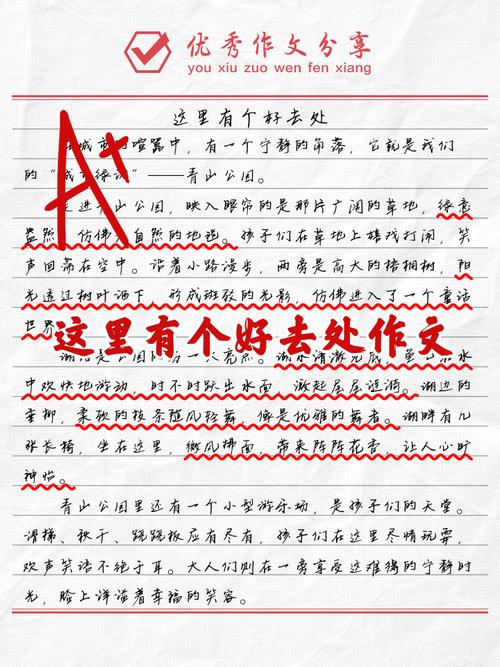 优秀作文分享
you xiu zuo wen fen xiang
这里有个好去处
城市的喧嚣中，有一个宁静的角落，它就是我们
的“城市绿
”——青山公园。
A+
走进青山公园，映入眼帘的是那片广阔的草地，绿意
盎然，仿佛是大自然的地毯。孩子们在草地上嬉戏打闹，笑
声回荡在空中。沿着小路漫步，两旁是高大的梧桐树，阳
光透过树叶洒下，形成斑驳的光影，仿佛进入了一个童话
世界
这里有个好去处作文
湖水清澈见底，鱼儿在水
中欢快地游动，时不时跃出水面，激起层层涟漪。湖边的
垂柳，柔软的枝条随风轻舞，像是优雅的舞者。湖畔有几
张长椅，坐在这里，微风拂面，带来阵阵花香，让人心旷
神怡。
青山公园里还有一个小型游乐场，是孩子们的天堂。
滑梯、秋千、跷跷板应有尽有，孩子们在这里尽情玩耍，
欢声笑语不绝于耳。大人们则在一旁享受这难得的宁静时
光，脸上洋溢着幸福的笑容。